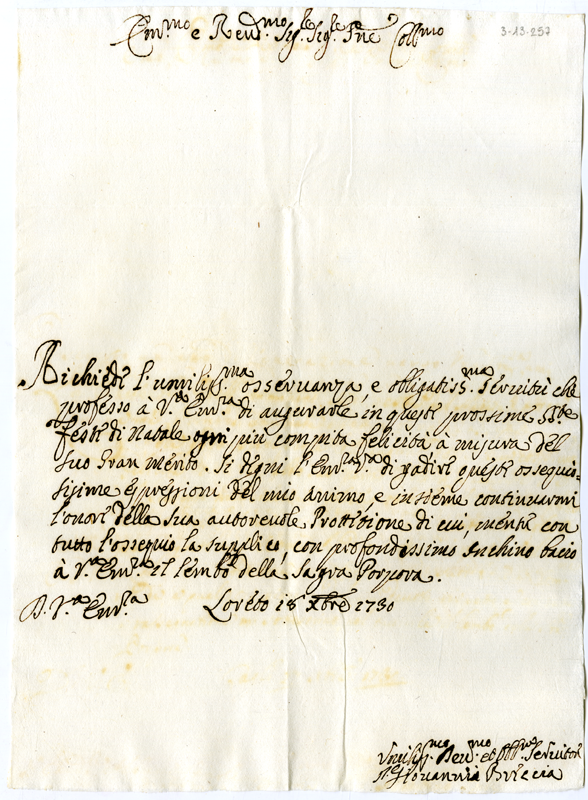 3-13-257
Em.mo e Reu.mo Sig.re Sig.re Prne Coll.mo
Richiede l'umiliss.ma osseruanza, e obligatiss.ma seruitù che
professo à V.ra Em.za di augurarle in queste prossime S.te
feste di Natale ogni più compita felicità à misura del
suo Gran merito. Si degni l'Em.za V.ra di gadire queste ossequio-
sissime espressioni del mio animo e insieme continuarmi
l'onore della sua autoreuole Prottetione di cui, mentre con
tutto l'ossequio la supplico, con profondissimo Inchino bacio
à V.ra Em.za il lembo della Sagra Porpora.
D. V.ra Em.za Loreto 18 Xbre 1730
Vmiliss.mo Deu.mo et Obb.mo Seruitore
Giouanni Brescia